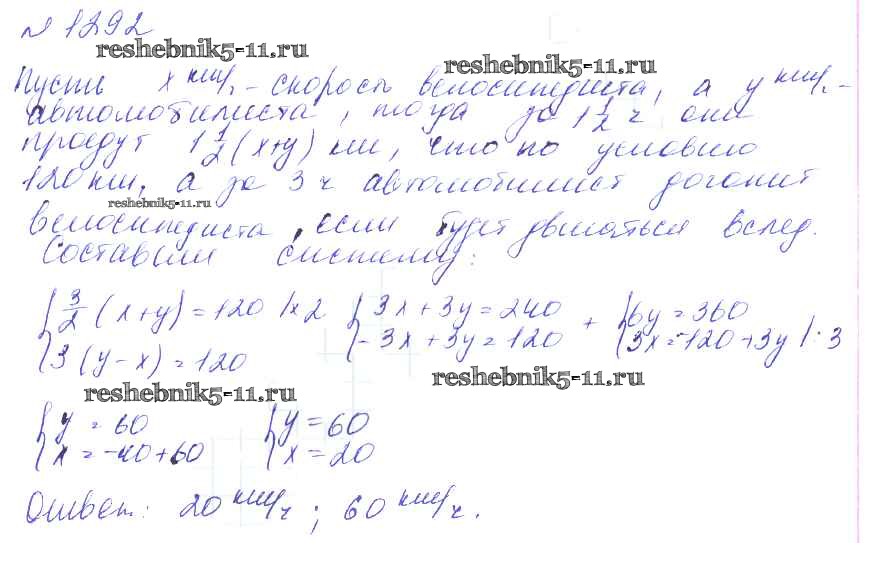 № 1292
reshebnik5-11.ru
reshebnik5-11.ru
Пусть x км/ч - скорость велосипедиста, а y км/ч -
автомобилиста, тогда за 1 1/2 ч они
проедут 1 1/2 (x+y) км, что по условию
120 км, а за 3 ч автомобилист догонит
reshebnik5-11.ru
велосипедиста, если будет двигаться вслед.
Составим систему:
{ 3/2 (x+y) = 120 |×2 { 3x + 3y = 240 + { 6y = 360
3(y-x) = 120 -3x + 3y = 120 3x = -120 + 3y |:3
reshebnik5-11.ru
reshebnik5-11.ru
{ y = 60 { y = 60
x = -40 + 60 x = 20
Ответ: 20 км/ч ; 60 км/ч.